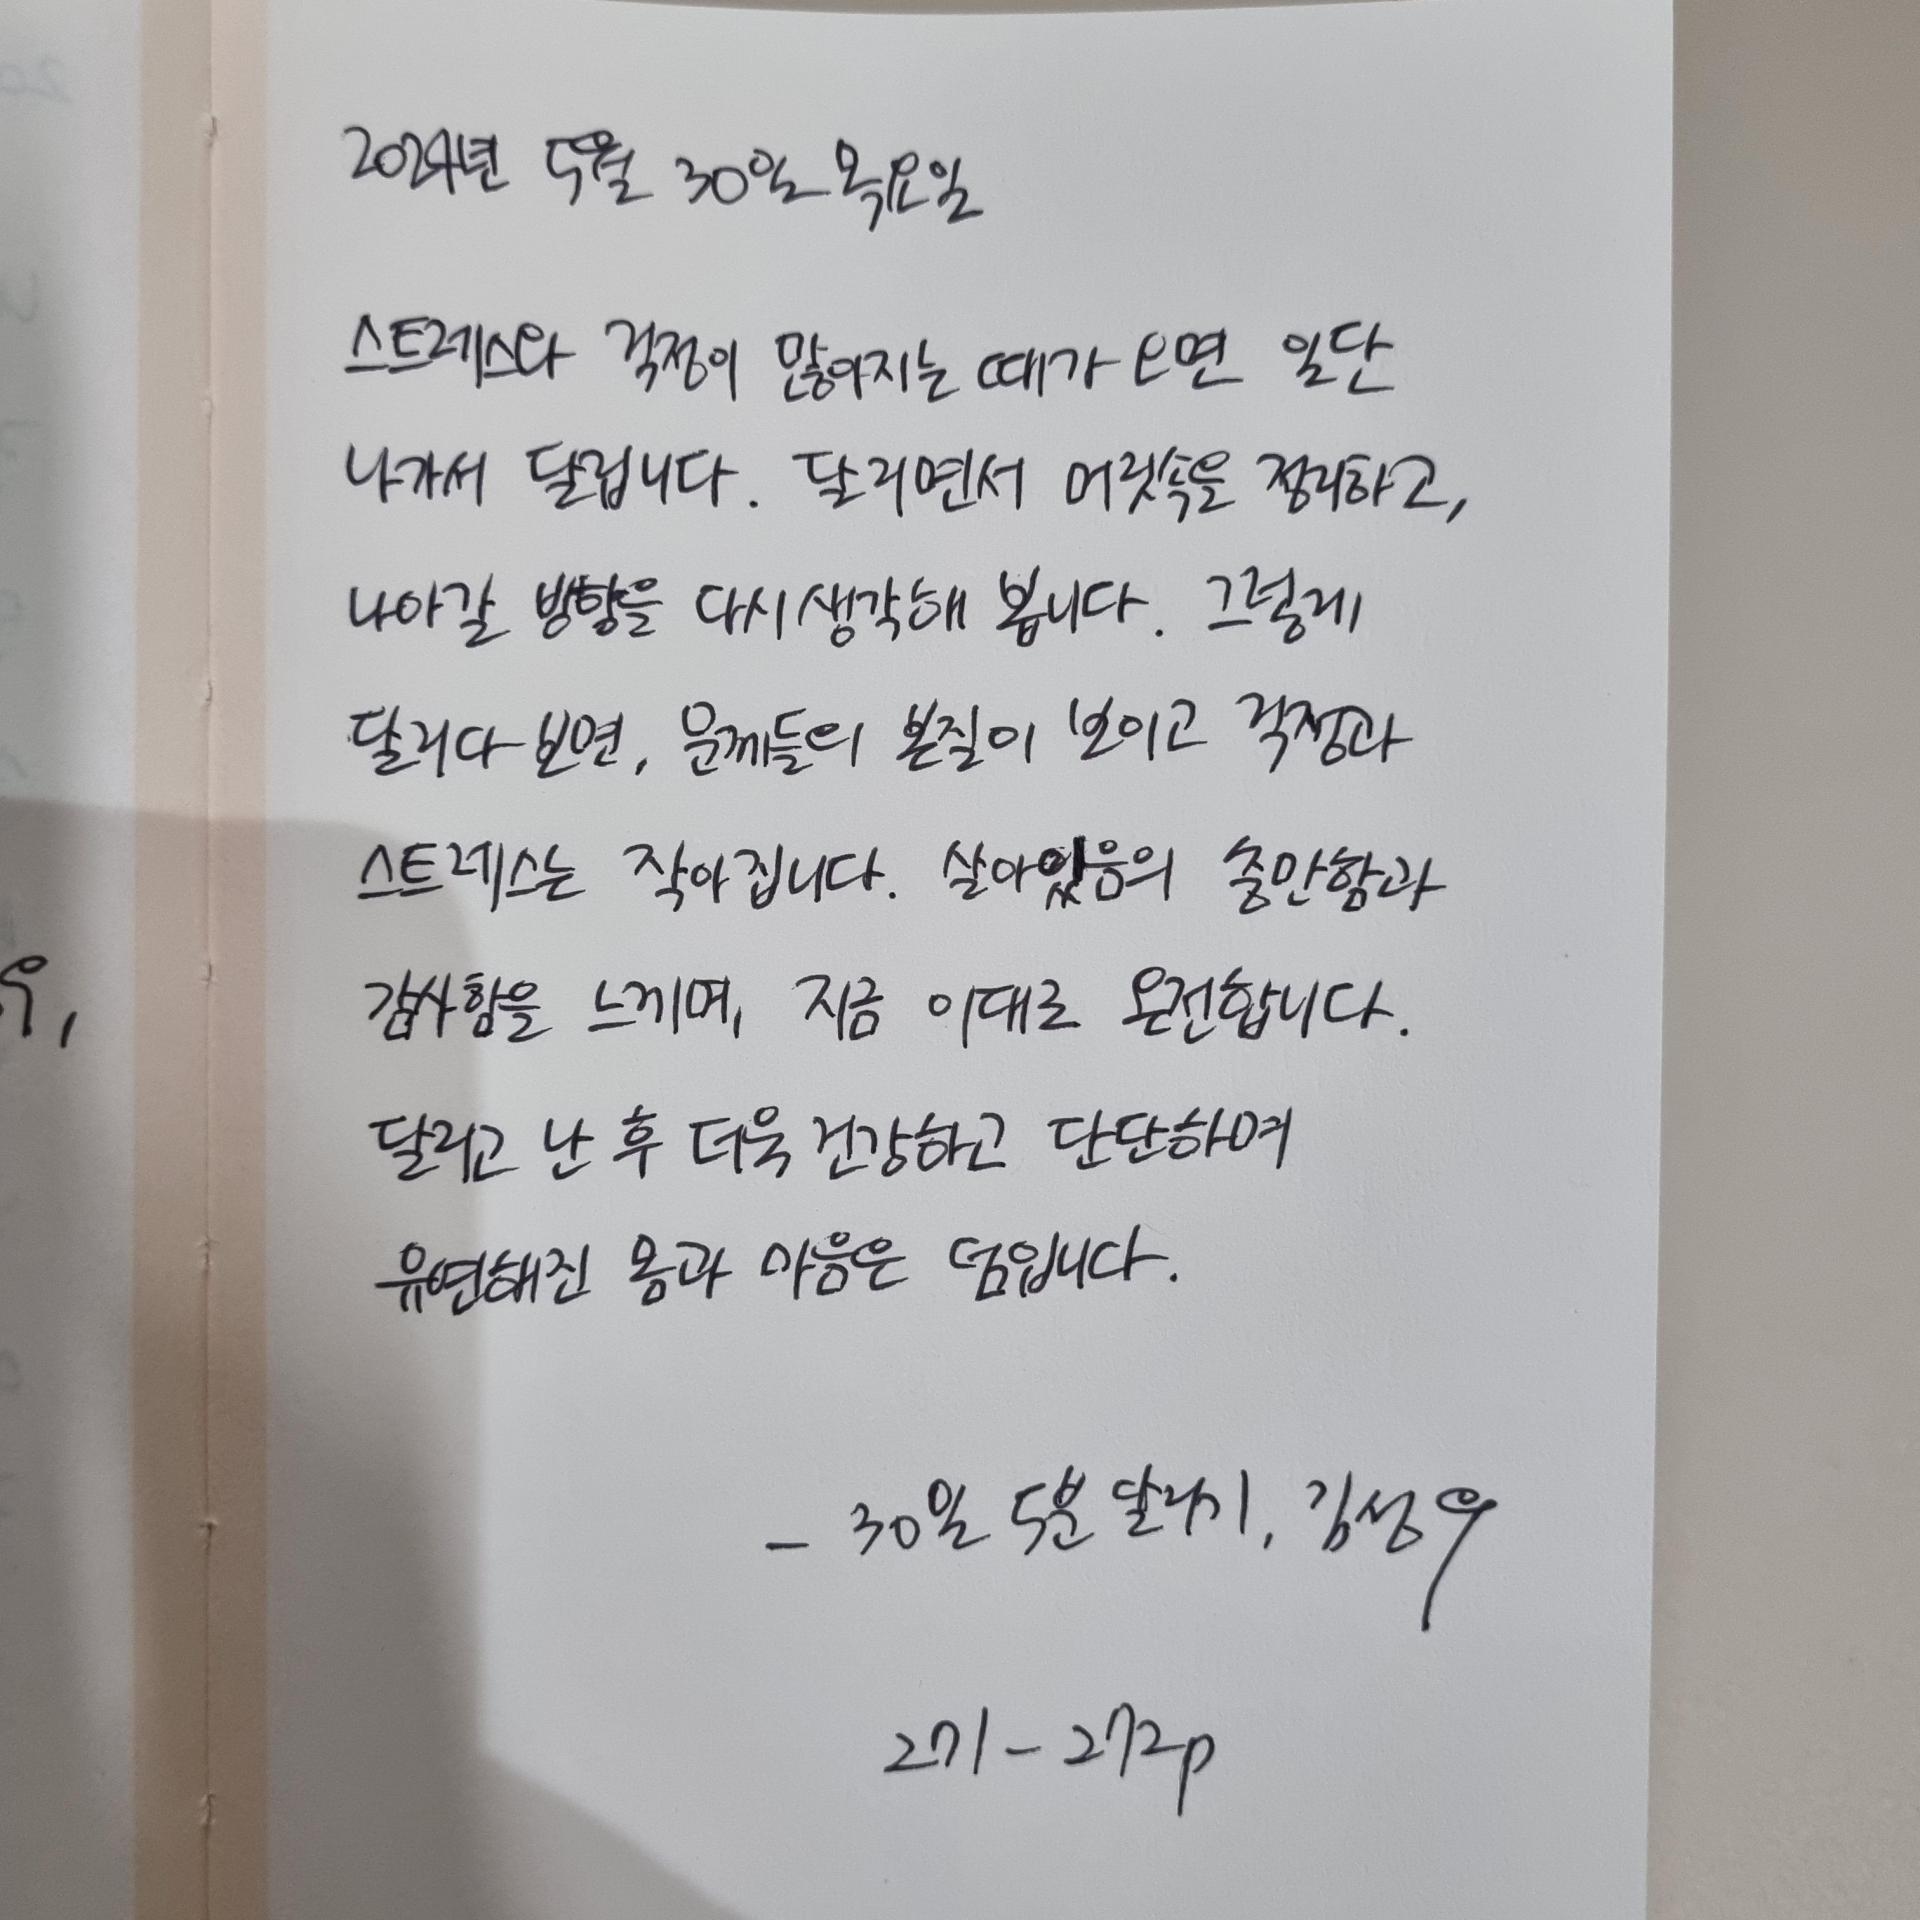 2024년 5월 30일 목요일
스트레스와 걱정이 많아지는 때가 오면 일단
나가서 달립니다. 달리면서 머릿속을 정리하고,
나아갈 방향을 다시 생각해 봅니다. 그렇게
달리다 보면, 문제들의 본질이 보이고 걱정과
스트레스는 작아집니다. 살아있음의 충만함과
감사함을 느끼며, 지금 이대로 온전합니다.
달리고 난 후 더욱 건강하고 단단하며
유연해진 몸과 마음은 덤입니다.
- 30일 5분 달리기, 김성우
271-272p